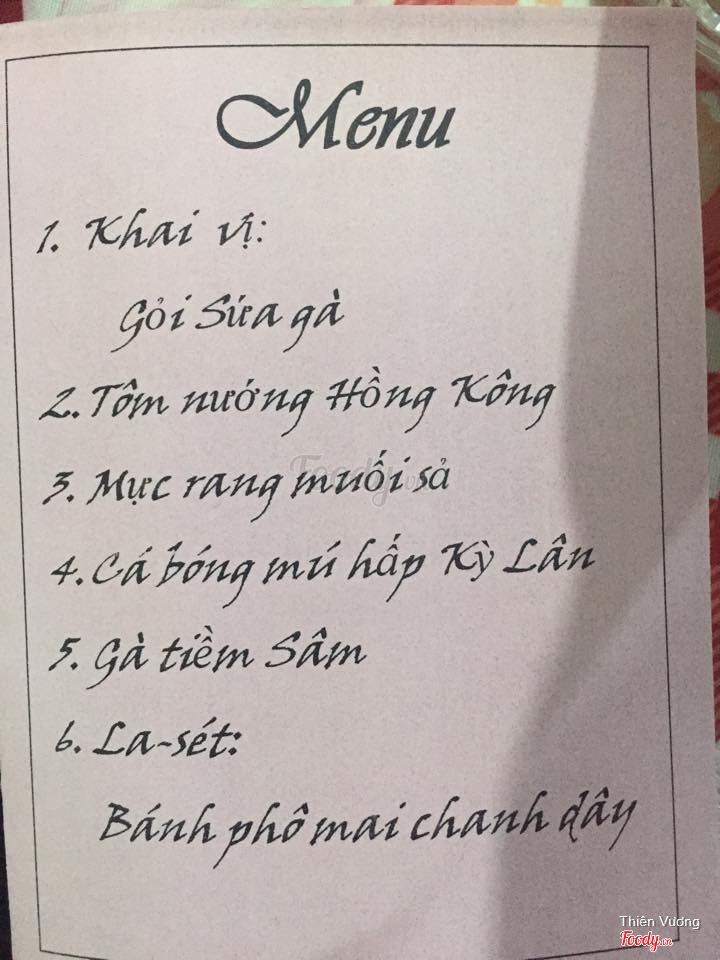 Menu
1. Khai vị:
Gỏi Sứa gà
2. Tôm nướng Hồng Kông
3. Mực rang muối sả
4. Cá bóng mú hấp Kỳ Lân
5. Gà tiềm Sâm
6. La-sét:
Bánh phô mai chanh dây
Foody
Thiên Vương
Foody.vn